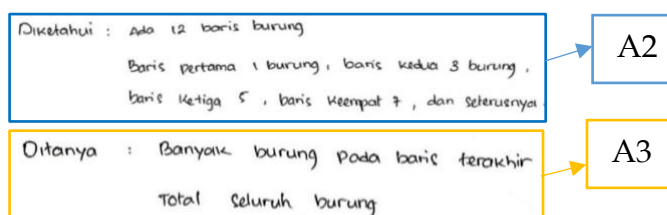 Diketahui : Ada 12 baris burung
A2
Baris pertama 1 burung, baris kedua 3 burung,
baris ketiga 5, baris keempat 7, dan seterusnya.
Ditanya : Banyak burung pada baris terakhir
A3
Total seluruh burung